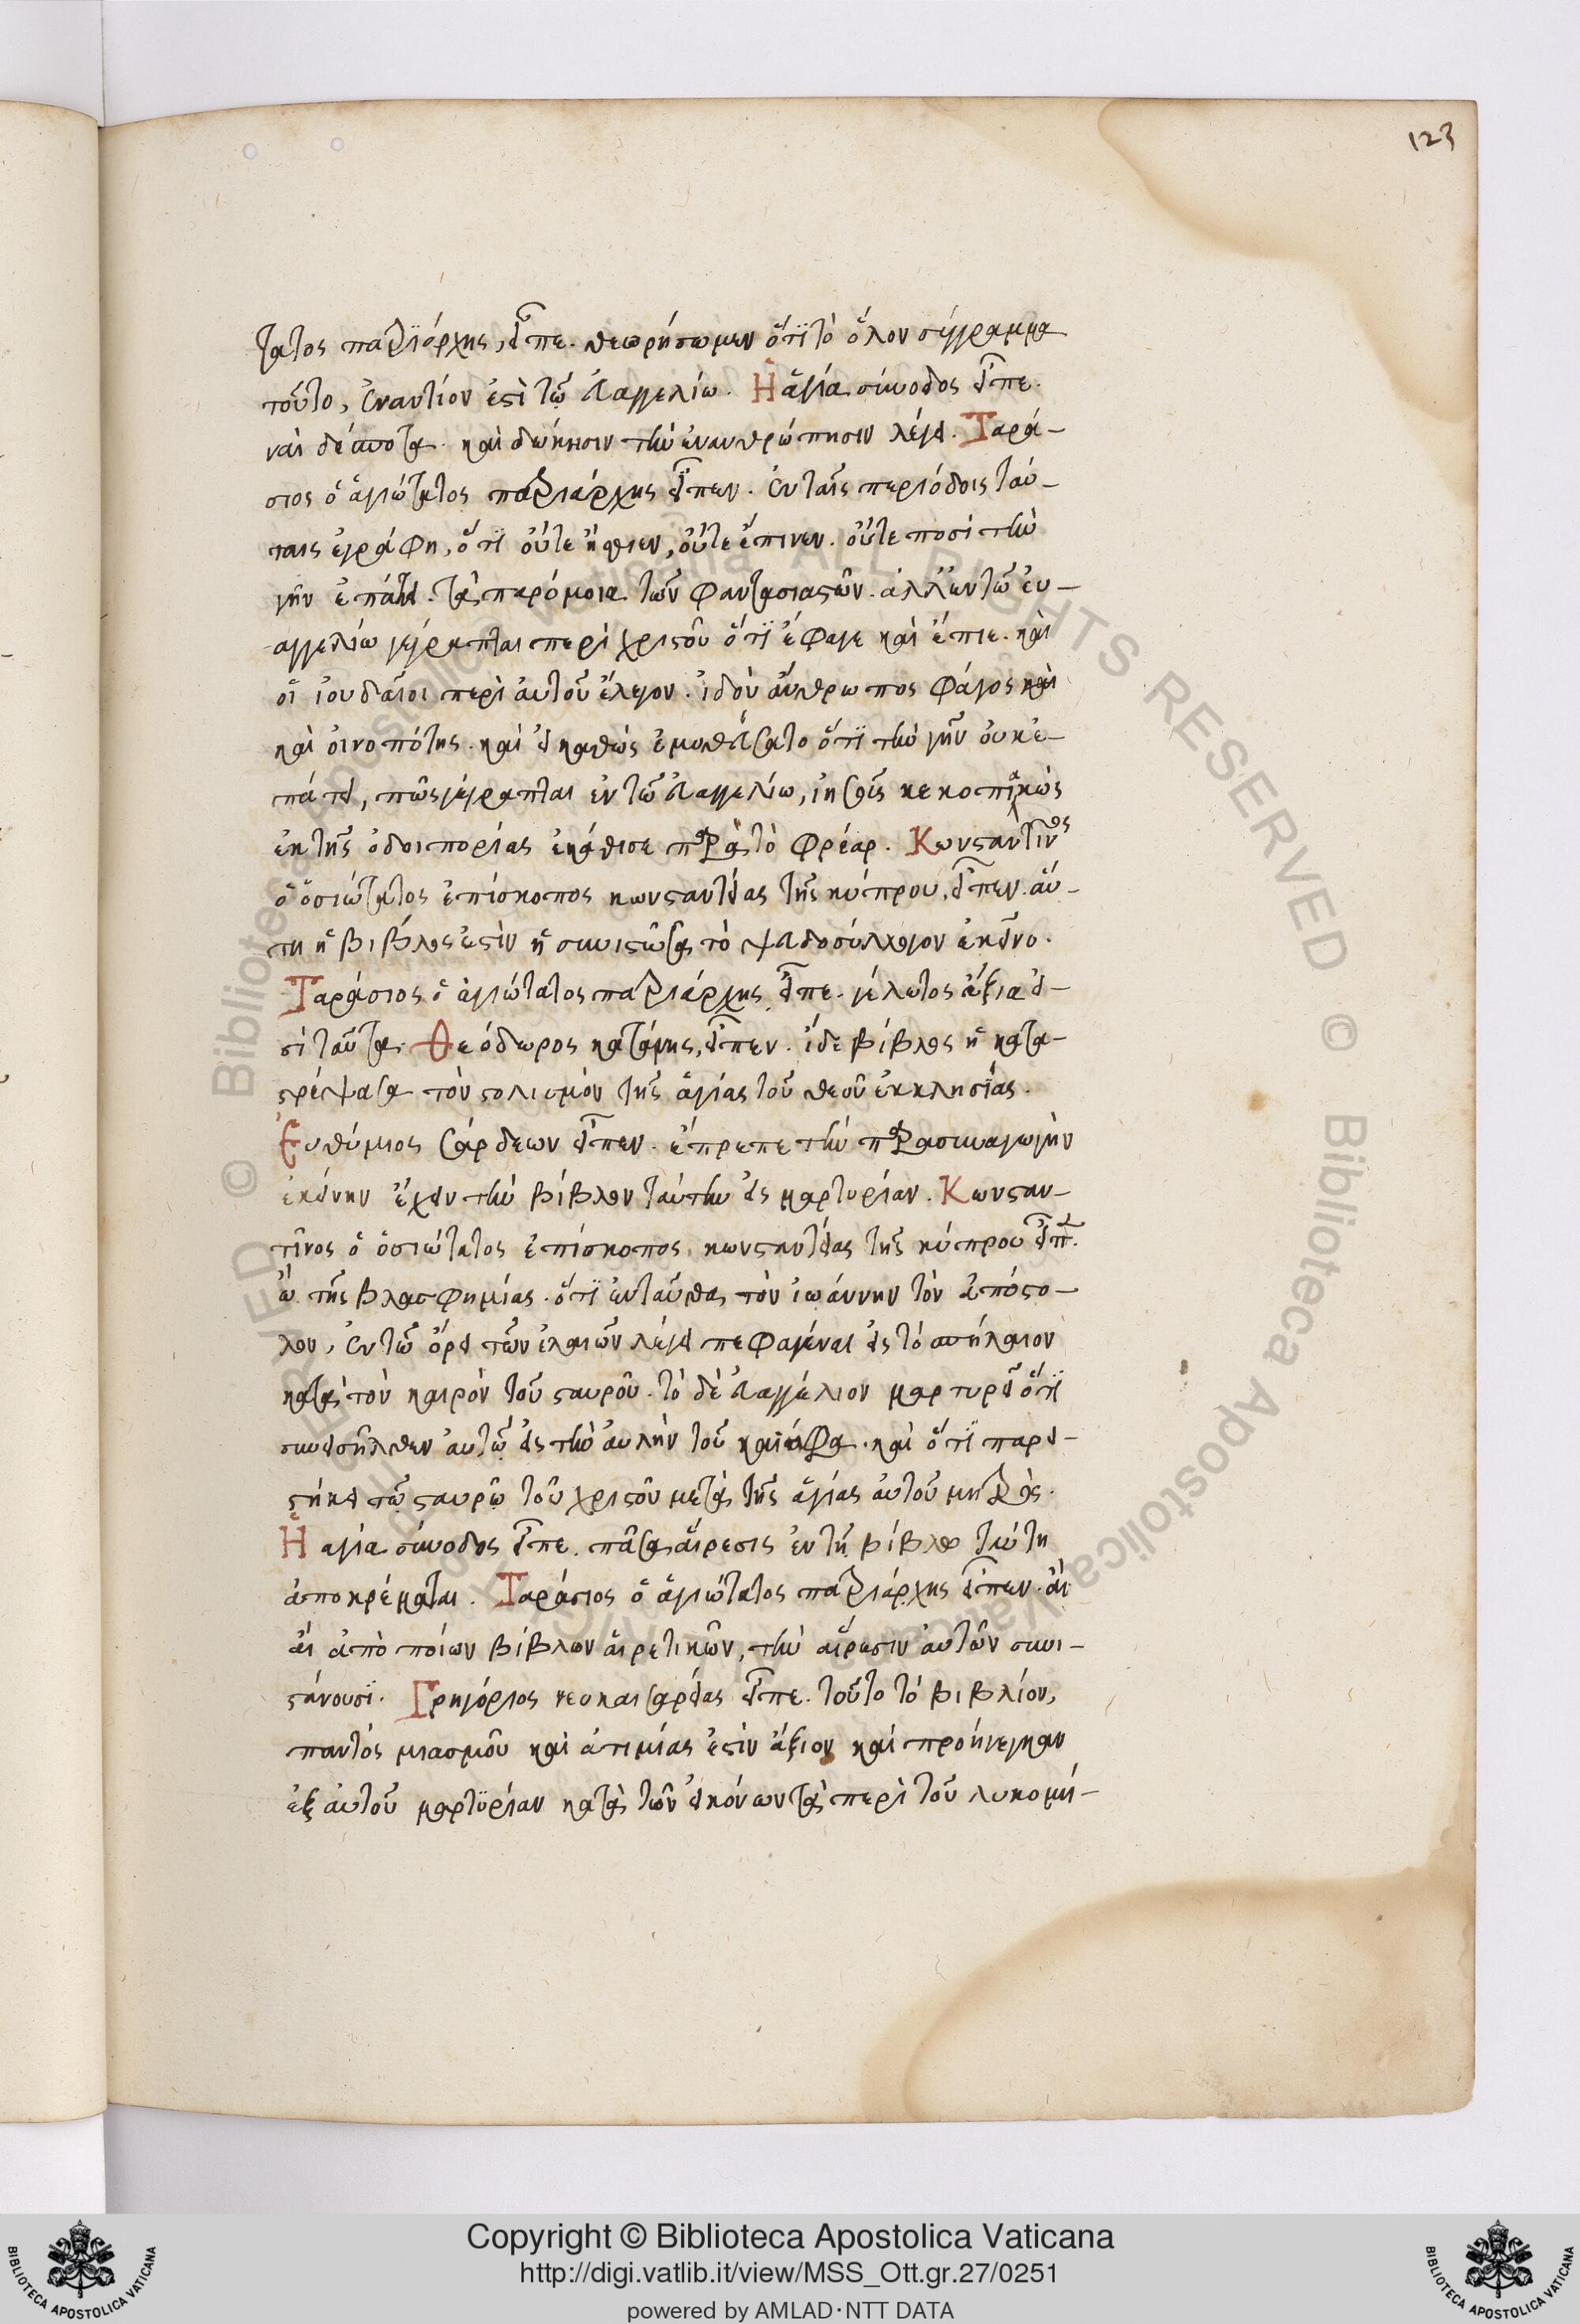 123
τατος πατριάρχης, εἶπε. θεωρήσωμεν ὅτι τὸ ὅλον σύγγραμμα
τοῦτο, ἐναντίον ἐστὶ τῷ εὐαγγελίω. Ἡ ἁγία σύνοδος εἶπε.
ναὶ δέσποτα. καὶ δώκησιν τὴν ἐνανθρώπησιν λέγει. Ταρά-
σιος ὁ ἁγιώτατος πατριάρχης εἶπεν. ἐν ταῖς περιόδοις ταύ-
ταις ἐγράφη, ὅτι οὔτε ἤσθιεν, οὔτε ἔπινεν. οὔτε ποσὶ τὴν
γῆν ἐπάτει. τὰ παρόμοια τῶν φαντασιαστῶν. ἀλλ' ἐν τῷ εὐ-
αγγελίω γέγραπται περὶ χριστοῦ ὅτι ἔφαγε καὶ ἔπιε. καὶ
οἱ ἰουδαῖοι περὶ αὐτοῦ ἔλεγον. ἰδοὺ ἄνθρωπος φάγος καὶ
καὶ οἰνοπότης. καὶ εἰ καθὼς ἐμυθεύσατο ὅτι τὴν γῆν οὐκ ἐ-
πάτει, πῶς γέγραπται ἐν τῷ εὐαγγελίω, ἰησοῦς κεκοπιακὼς
ἐκ τῆς ὁδοιπορίας ἐκάθισε παρὰ τὸ φρέαρ. Κωνσταντῖνος
ὁ ὁσιώτατος ἐπίσκοπος κωνσταντείας τῆς κύπρου, εἶπεν. αὕ-
τη ἡ βίβλος ἐστὶν ἡ συνιστῶσα τὸ ψευδοσύλλογον ἐκεῖνο.
Ταράσιος ὁ ἁγιώτατος πατριάρχης εἶπε. γέλωτος ἄξια εἰ-
σὶ ταῦτα. Θεόδωρος κατάνης, εἶπεν. ἴδε βίβλος ἡ κατα-
στρέψασα τὸν στολισμὸν τῆς ἁγίας τοῦ θεοῦ ἐκκλησίας.
Εὐθύμιος σάρδεων εἶπεν. ἔπρεπε τὴν παρασυναγωγὴν
ἐκείνην ἔχειν τὴν βίβλον ταύτην εἰς μαρτυρίαν. Κωνσταν-
τῖνος ὁ ὁσιώτατος ἐπίσκοπος κωνσταντείας τῆς κύπρου εἶπ.
ὢ τῆς βλασφημίας. ὅτι ἐνταῦθα τὸν ἰωάννην τὸν ἀπόστο-
λον, ἐν τῷ ὄρει τῶν ἐλαιῶν λέγει πεφαγέναι εἰς τὸ σπήλαιον
κατὰ τὸν καιρὸν τοῦ σταυροῦ. τὸ δὲ εὐαγγέλιον μαρτυρεῖ ὅτι
συνεισῆλθεν αὐτῷ εἰς τὴν αὐλὴν τοῦ καϊάφα. καὶ ὅτι παρει-
στήκει τῷ σταυρῷ τοῦ χριστοῦ μετὰ τῆς ἁγίας αὐτοῦ μητρός.
Ἡ ἁγία σύνοδος εἶπε. πᾶσα αἵρεσις ἐν τῇ βίβλω ταύτη
ἀποκρέμαται. Ταράσιος ὁ ἁγιώτατος πατριάρχης εἶπεν. αἲ
αἲ ἀπὸ ποίων βίβλων αἱρετικῶν, τὴν αἵρεσιν αὐτῶν συνι-
στάνουσι. Γρηγόριος νεοκαισαρείας εἶπε. τοῦτο τὸ βιβλίον,
παντὸς μιασμοῦ καὶ ἀτιμίας ἐστὶν ἄξιον καὶ προήνεγκαν
ἐξ αὐτοῦ μαρτυρίαν κατὰ τῶν εἰκόνων τὰ περὶ τοῦ λυκομή-
© Biblioteca Apostolica Vaticana ALL RIGHTS RESERVED © Biblioteca Apostolica Vaticana
Copyright © Biblioteca Apostolica Vaticana
http://digi.vatlib.it/view/MSS_Ott.gr.27/0251
powered by AMLAD·NTT DATA
BIBLIOTECA APOSTOLICA VATICANA
BIBLIOTECA APOSTOLICA VATICANA